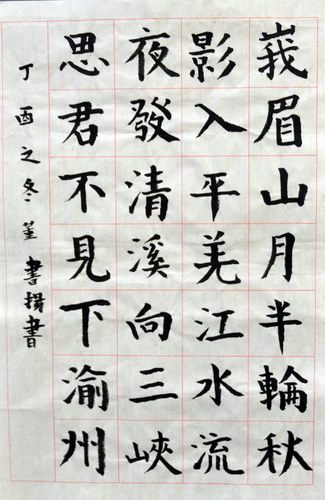 峩眉山月半輪秋
影入平羌江水流
夜發清溪向三峽
思君不見下渝州
丁酉之冬書書